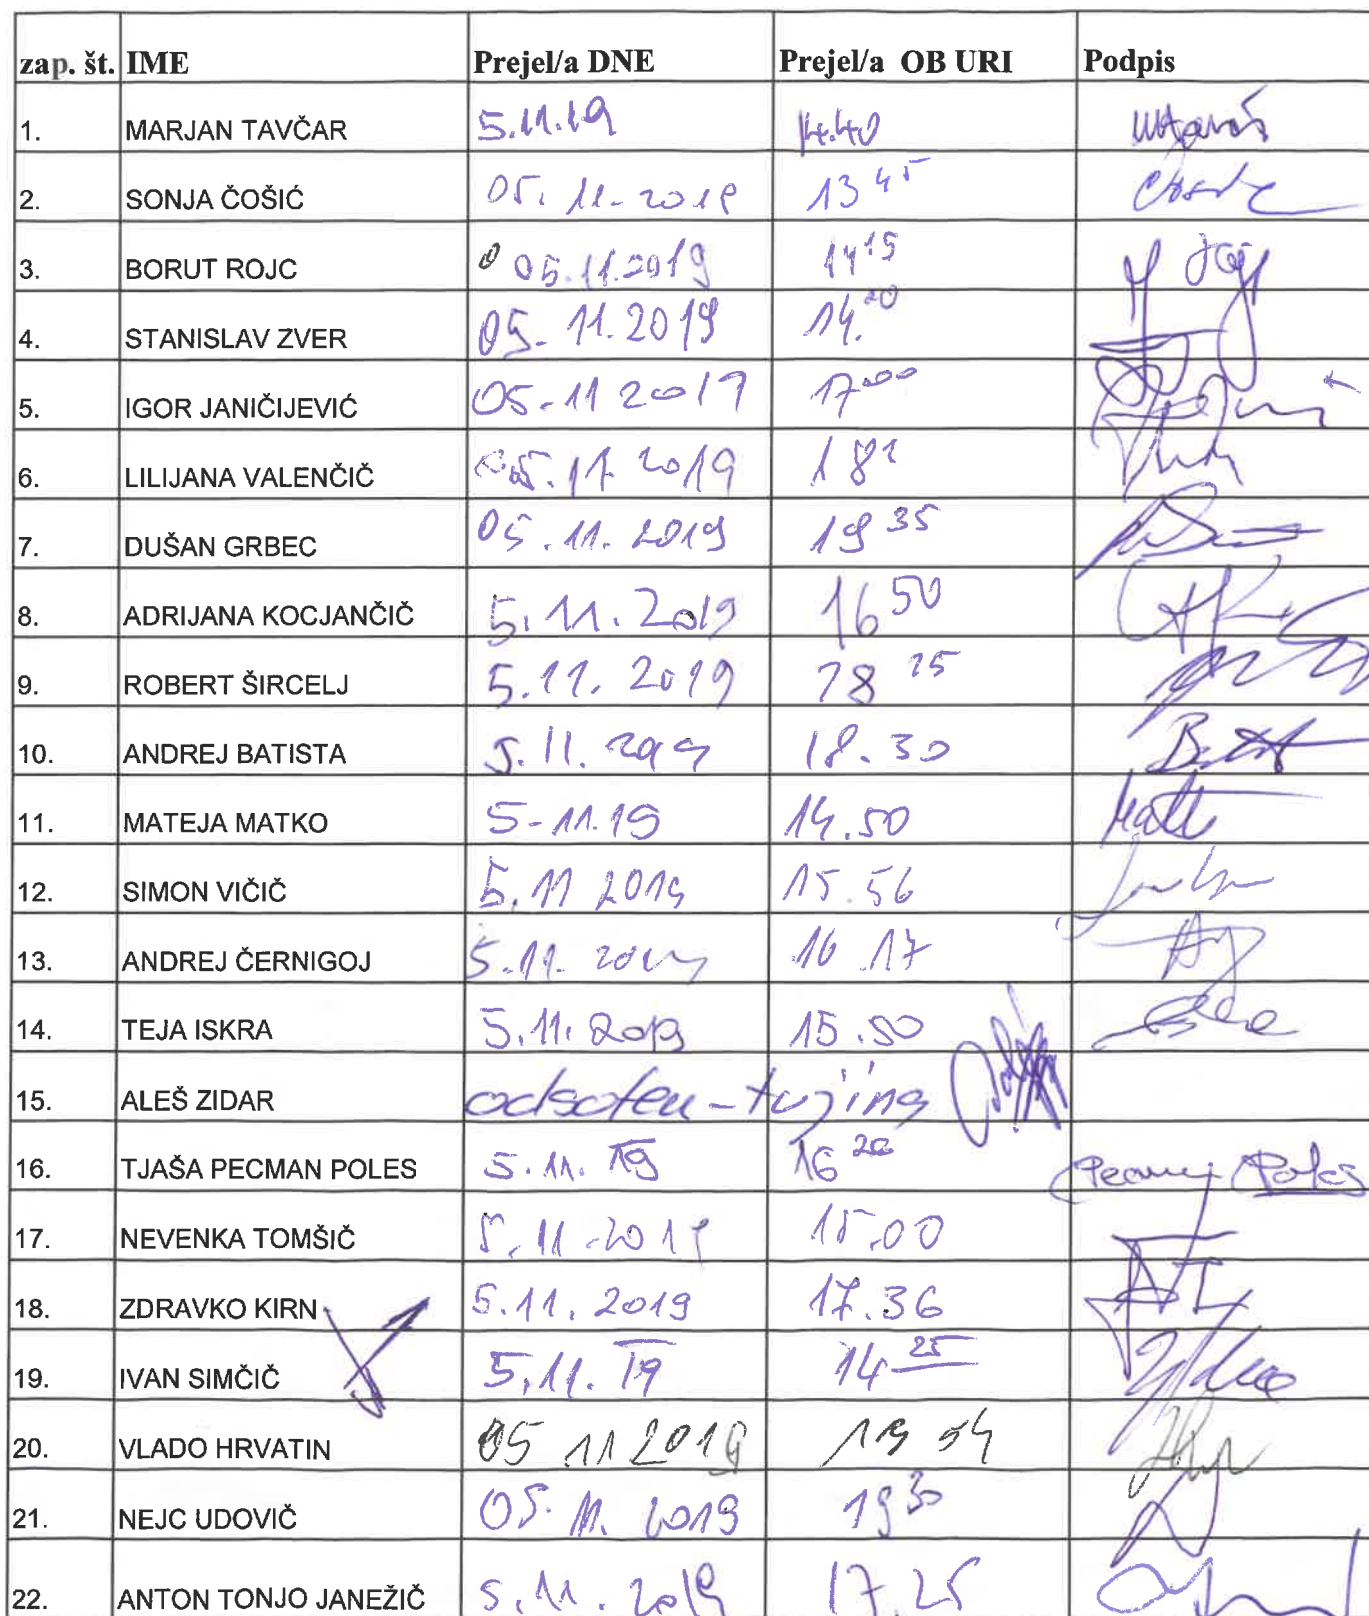 zap. št. IME Prejel/a DNE Prejel/a OB URI Podpis
1. MARJAN TAVČAR 5.11.19 14.40
2. SONJA ČOŠIĆ 05. 11. 2019 13 45
3. BORUT ROJC 05.11.2019 14 15
4. STANISLAV ZVER 05. 11. 2019 14. 20
5. IGOR JANIČIJEVIĆ 05-11 2019 17 00
6. LILIJANA VALENČIČ 05.11 2019
7. DUŠAN GRBEC 05. 11. 2019 19 35
8. ADRIJANA KOCJANČIČ 5. 11. 2019 16 50
9. ROBERT ŠIRCELJ 5.11. 2019
10. ANDREJ BATISTA 5. 11. 2019 18.30
11. MATEJA MATKO 5-11.19 14.50
12. SIMON VIČIČ 5.11 2019 15.56
13. ANDREJ ČERNIGOJ 5.11. 2019 16 17
14. TEJA ISKRA 5.11. 2019 15.50
15. ALEŠ ZIDAR odsoten - tujina
16. TJAŠA PECMAN POLES 5.11. 19 16 20 Pecman Poles
17. NEVENKA TOMŠIČ 5. 11 -2019 15.00
18. ZDRAVKO KIRN 5.11. 2019 17.36
19. IVAN SIMČIČ 5.11. 19 14 25
20. VLADO HRVATIN 05 11 2019 19 54
21. NEJC UDOVIČ 05. 11. 2019 19 30
22. ANTON TONJO JANEŽIČ 5. 11. 2019 17.25